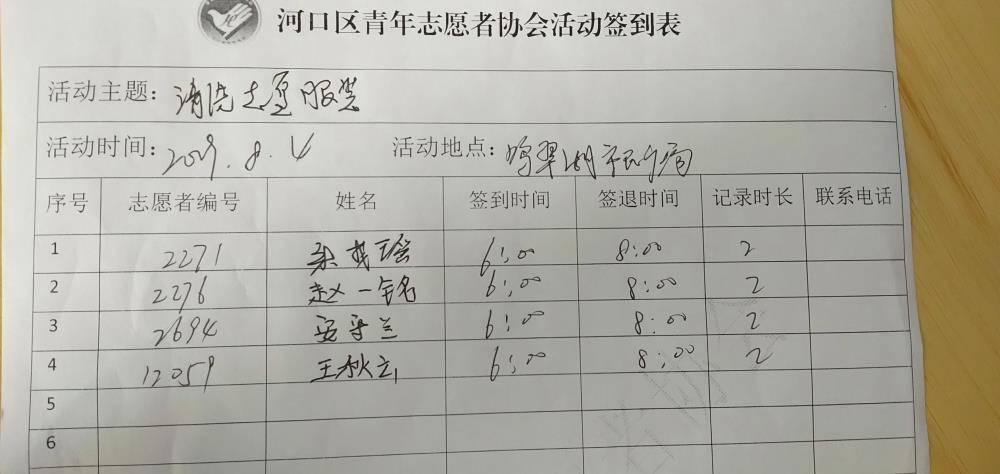 河口区青年志愿者协会活动签到表
活动主题：清洗志愿服装
活动时间：2019.8.4 活动地点：鸣翠湖
序号 志愿者编号 姓名 签到时间 签退时间 记录时长 联系电话
1 2271 6:00 8:00 2
2 2276 赵一铭 6:00 8:00 2
3 2694 安平兰 6:00 8:00 2
4 12059 王秋云 6:00 8:00 2
5
6